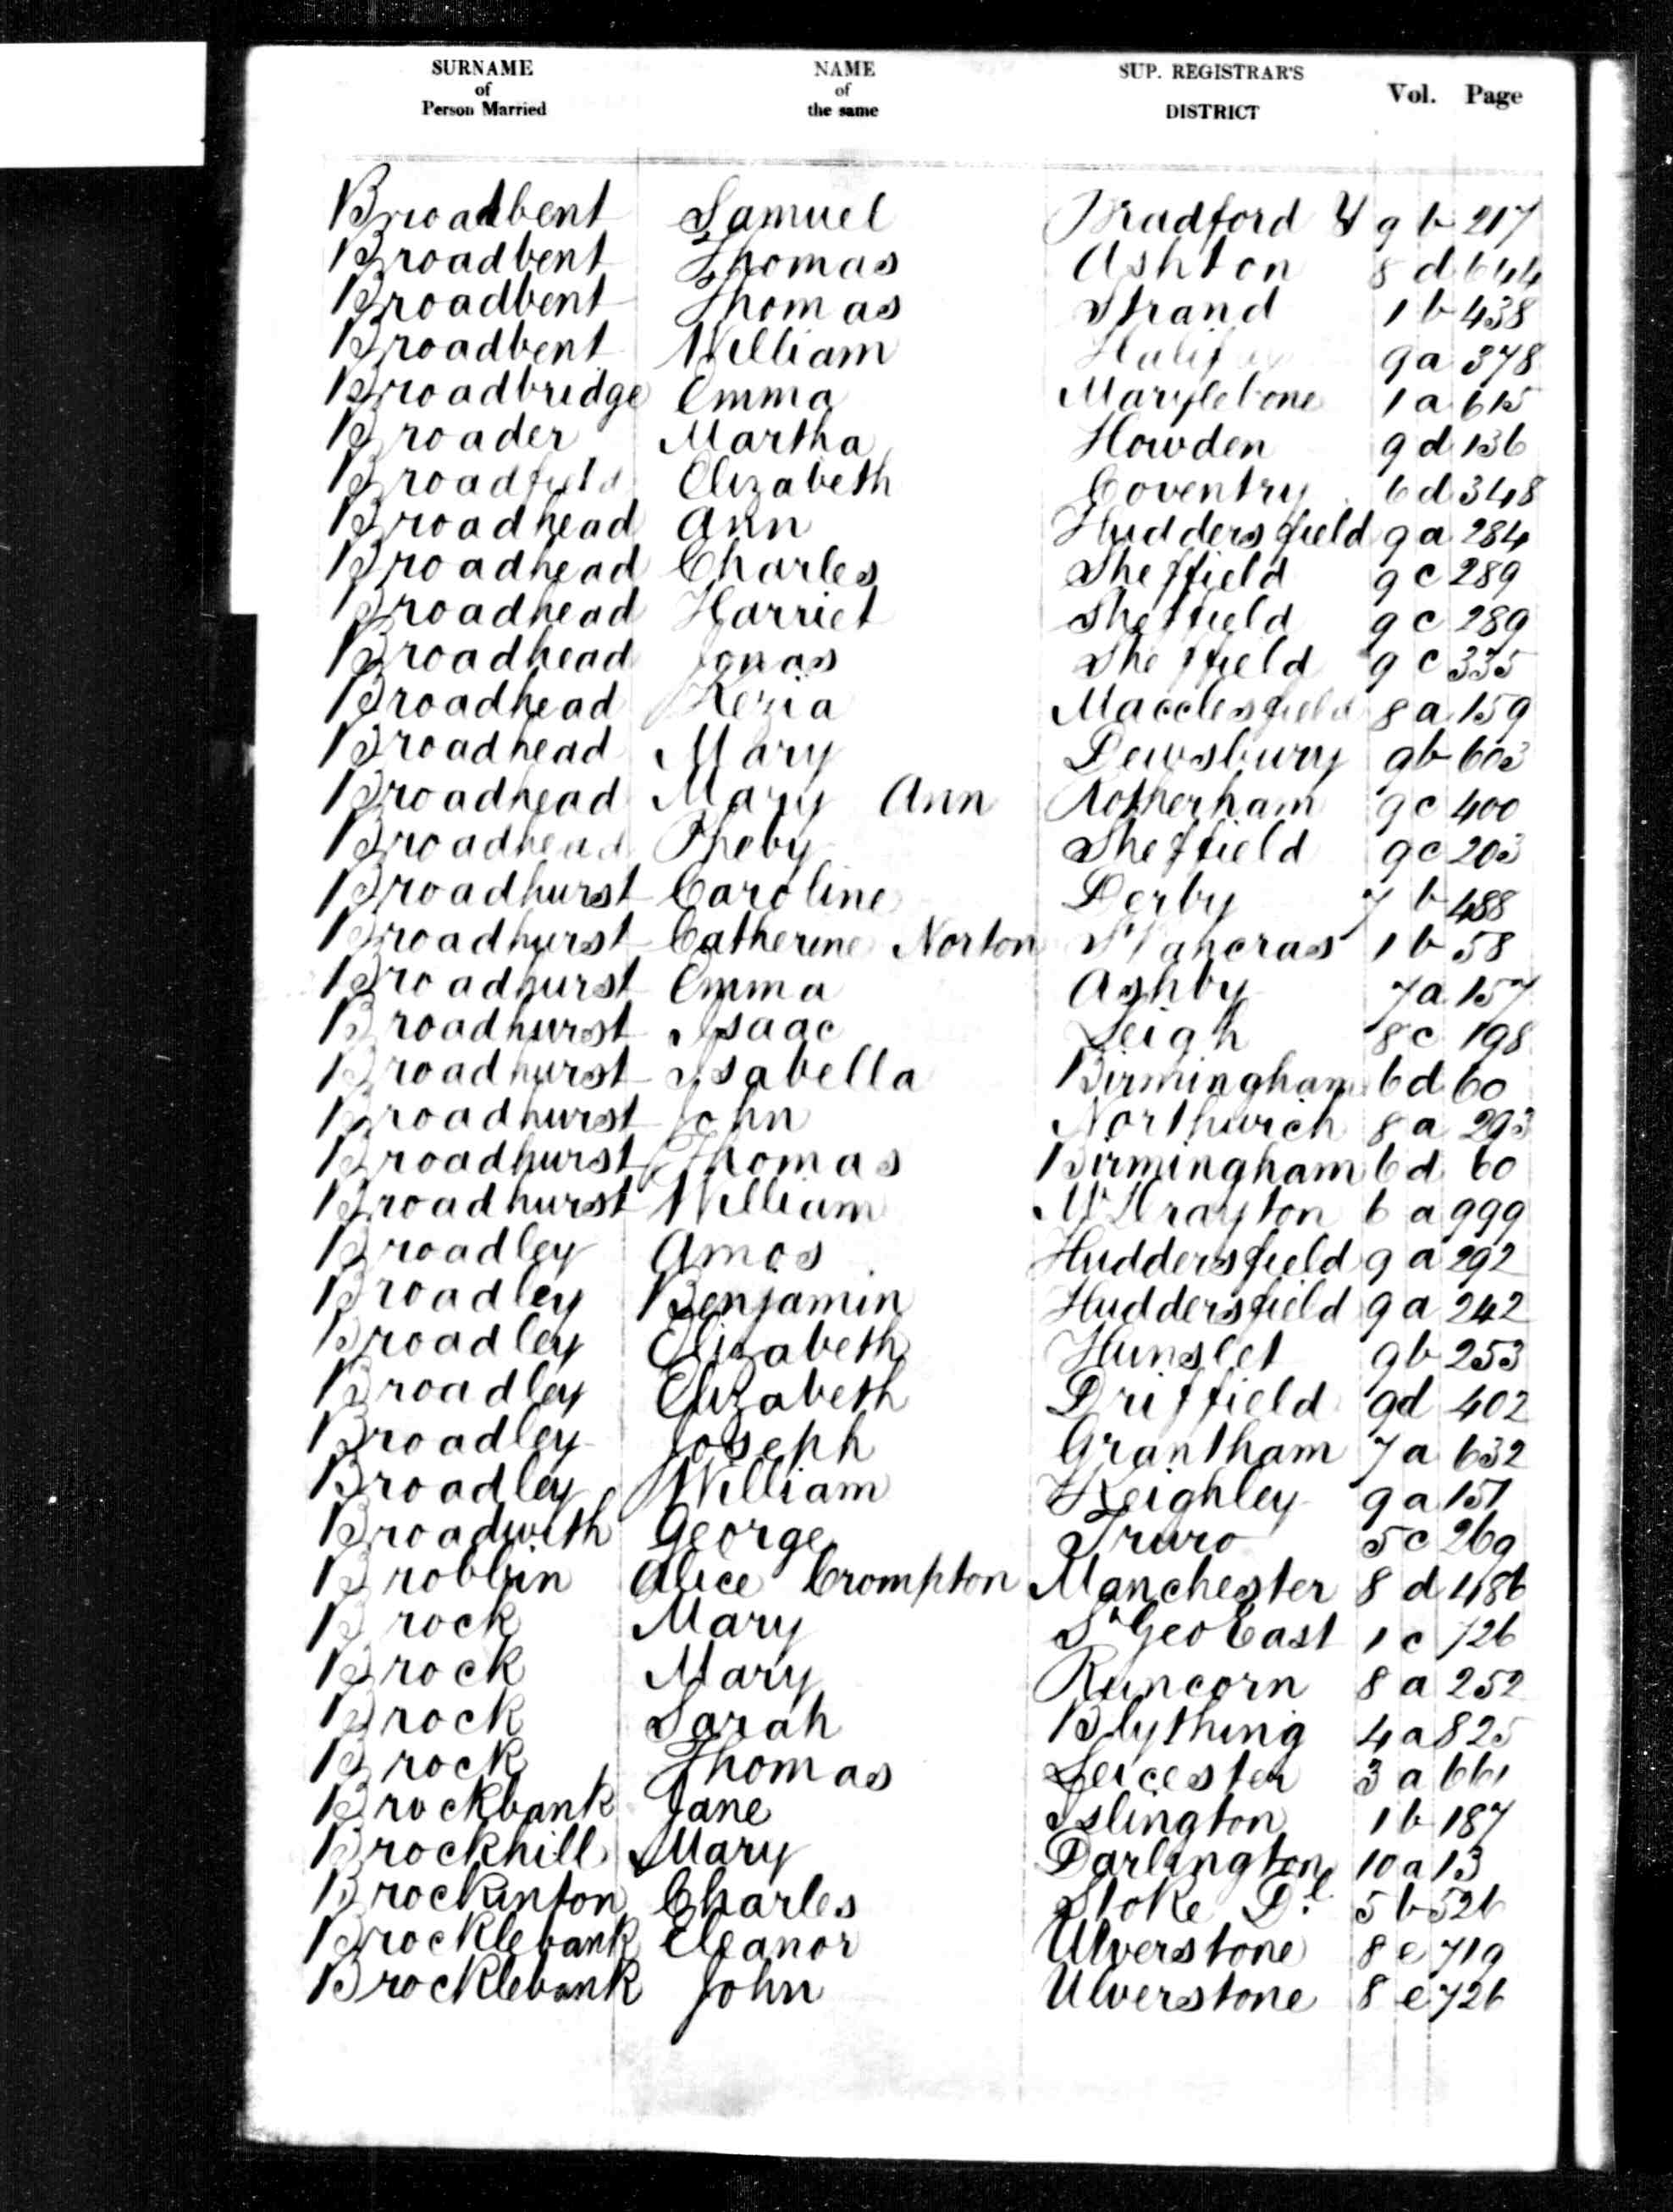 SURNAME of Person Married NAME of the same SUP. REGISTRAR'S DISTRICT Vol. Page
Broadbent Samuel Bradford Y 9 b 217
Broadbent Thomas Ashton 8 d 644
Broadbent Thomas Strand 1 b 438
Broadbent William Halifax 9 a 378
Broadbridge Emma Marylebone 1 a 615
Broader Martha Howden 9 d 136
Broadfield Elizabeth Coventry 6 d 348
Broadhead Ann Huddersfield 9 a 284
Broadhead Charles Sheffield 9 c 289
Broadhead Harriet Sheffield 9 c 289
Broadhead Jonas Sheffield 9 c 335
Broadhead Kezia Macclesfield 8 a 159
Broadhead Mary Dewsbury 9 b 603
Broadhead Mary Ann Rotherham 9 c 400
Broadhead Pheby Sheffield 9 c 203
Broadhurst Caroline Derby 7 b 488
Broadhurst Catherine Norton St Pancras 1 b 58
Broadhurst Emma Ashby 7 a 157
Broadhurst Isaac Leigh 8 c 198
Broadhurst Isabella Birmingham 6 d 60
Broadhurst John Northwich 8 a 293
Broadhurst Thomas Birmingham 6 d 60
Broadhurst William Mt Drayton 6 a 999
Broadley Amos Huddersfield 9 a 292
Broadley Benjamin Huddersfield 9 a 242
Broadley Elizabeth Hunslet 9 b 253
Broadley Elizabeth Driffield 9 d 402
Broadley Joseph Grantham 7 a 632
Broadley William Keighley 9 a 151
Broadwith George Truro 5 c 269
Brobbin Alice Crompton Manchester 8 d 486
Brock Mary St Geo East 1 c 726
Brock Mary Runcorn 8 a 252
Brock Sarah Blything 4 a 825
Brock Thomas Leicester 3 a 661
Brockbank Jane Islington 1 b 187
Brockhill Mary Darlington 10 a 13
Brockinton Charles Stoke Dl 5 b 526
Brocklebank Eleanor Ulverstone 8 e 719
Brocklebank John Ulverstone 8 e 726